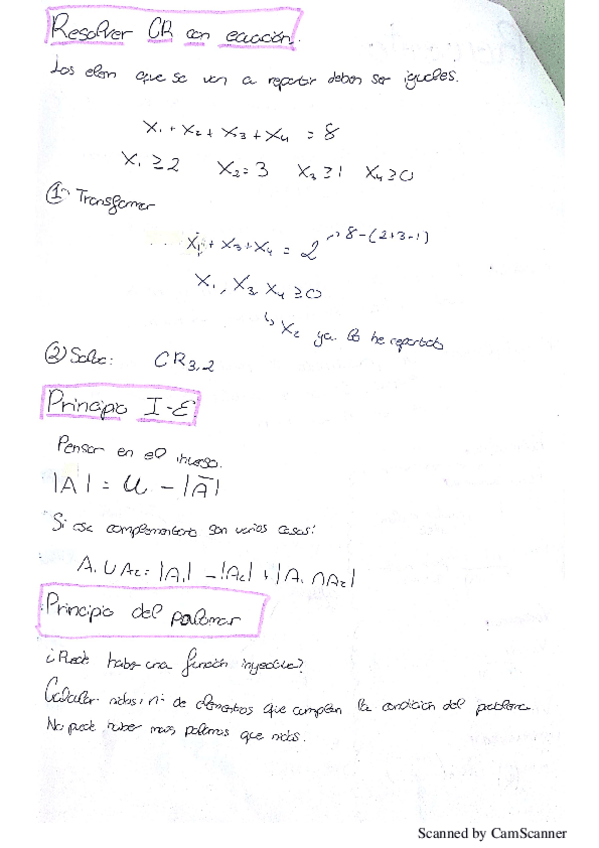 Resolver CR con ecuación.
Los elem que se van a repartir deben ser iguales.
X₁ + X₂ + X₃ + X₄ = 8
X₁ ≥ 2 X₂ = 3 X₃ ≥ 1 X₄ ≥ 0
① Transformar
X₁ + X₃ + X₄ = 2 → 8-(2+3-1)
X₁, X₃ X₄ ≥ 0
↳ X₂ ya lo he repartido
② Saber: CR₃,₂
Principio I-E
Pensar en el inverso.
|A| = U - |Ā|
Si ese complementario son varios casos:
A₁ ∪ A₂ = |A₁| - |A₂| + |A₁ ∩ A₂|
Principio del palomar
¿Puede haber una función inyectiva?
Calcular nidos: nº de elementos que cumplen la condición del problema.
No puede haber más palomas que nidos.
Scanned by CamScanner